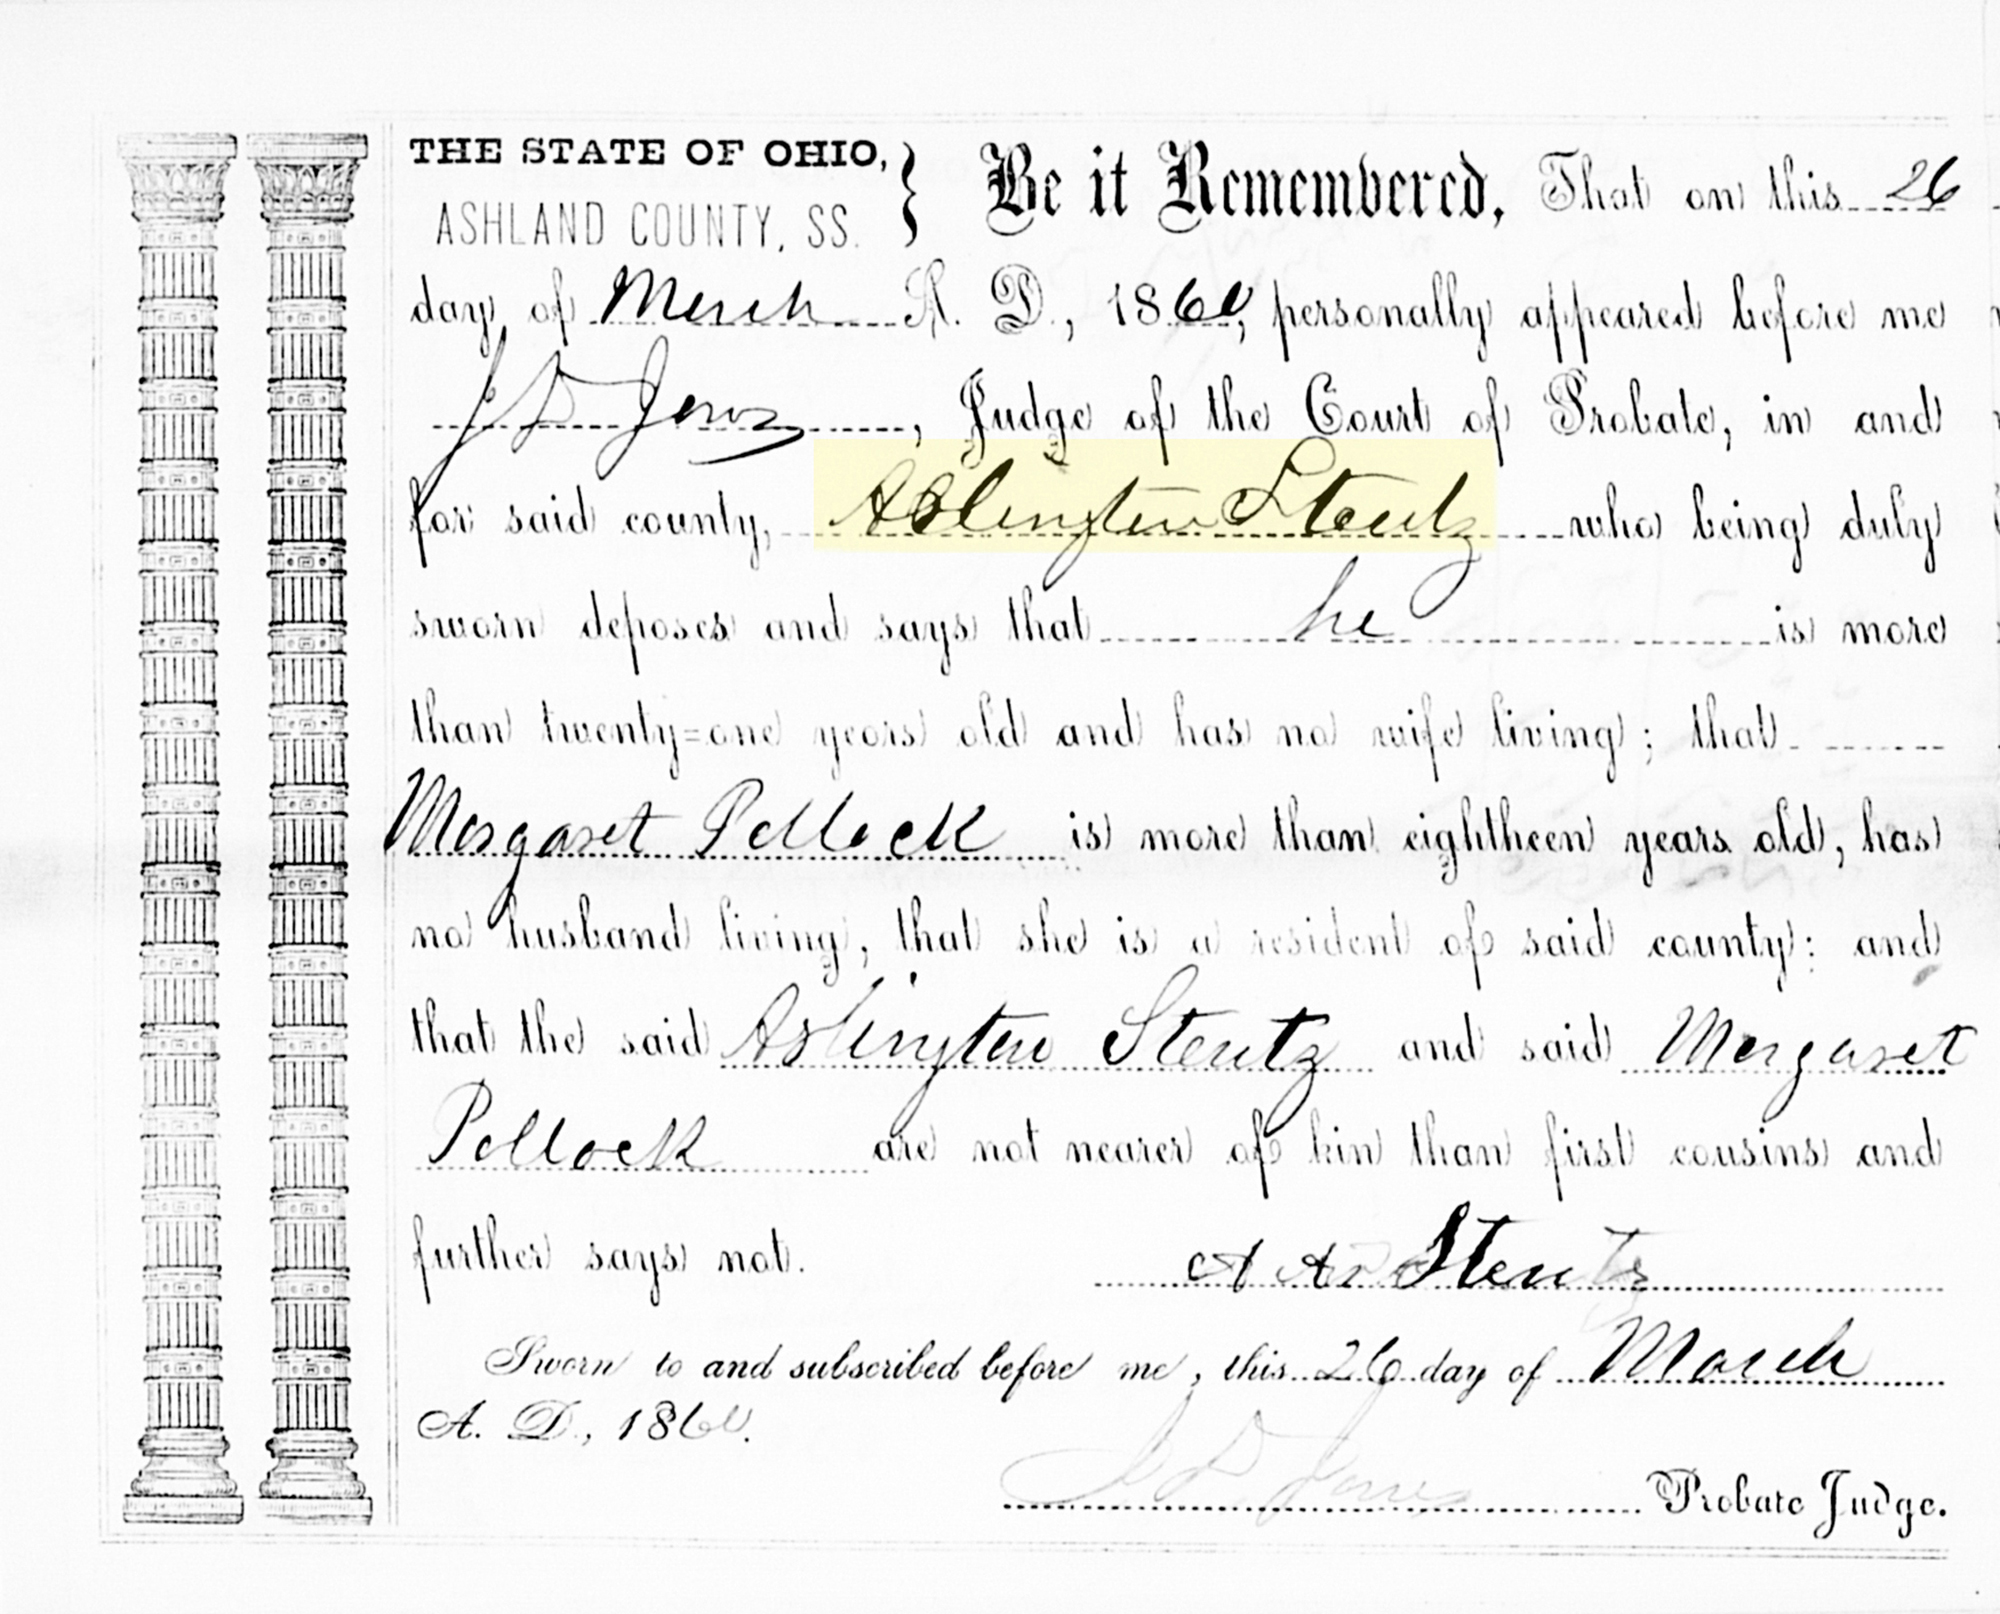 THE STATE OF OHIO, } Be it Remembered, That on this 26
ASHLAND COUNTY, SS.
day of March A. D., 1860, personally appeared before me
J D Jones, Judge of the Court of Probate, in and
for said county, Aslington Stentz who being duly
sworn deposes and says that he is more
than twenty=one years old and has no wife living; that
Margaret Pollock is more than eightheen years old, has
no husband living, that she is a resident of said county: and
that the said Aslington Stentz and said Margaret
Pollock are not nearer of kin than first cousins and
further says not. A Stentz
Sworn to and subscribed before me, this 26 day of March
A. D., 1860.
J D Jones Probate Judge.